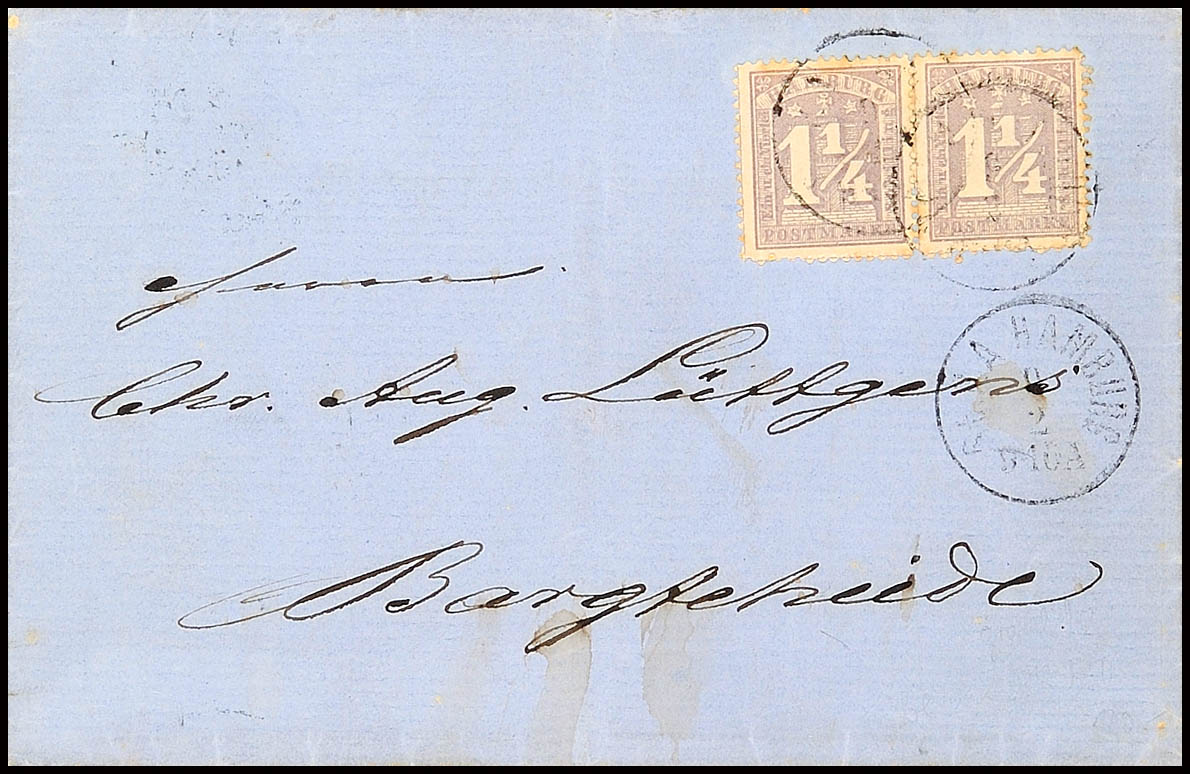 HAMBURG
1¼
POSTMARKE
HAMBURG
1¼
POSTMARKE
Herrn
Chr. Aug. Lüttgens
HAMBURG
Bargteheide